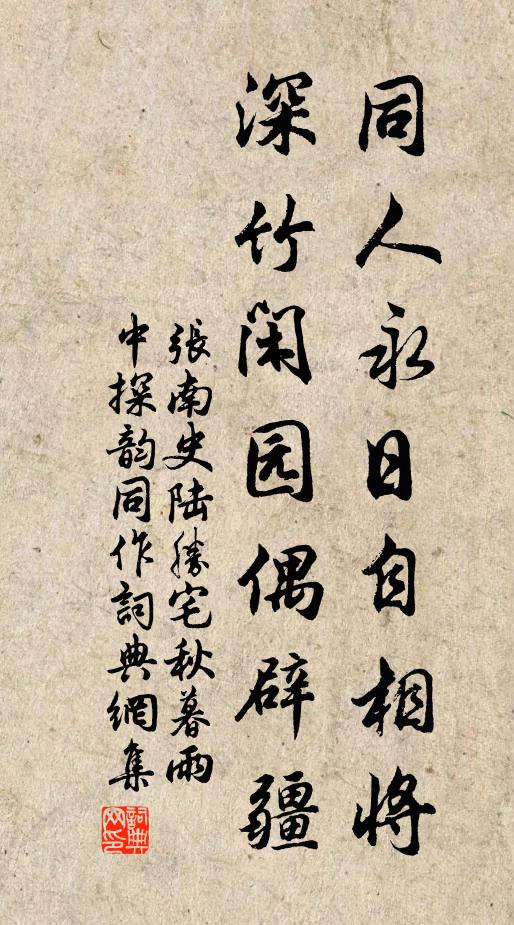 同人永日自相将
深竹闲园偶辟疆
張南史陆勝宅秋暮雨
中探韵同作詞典網集
詞典
网印